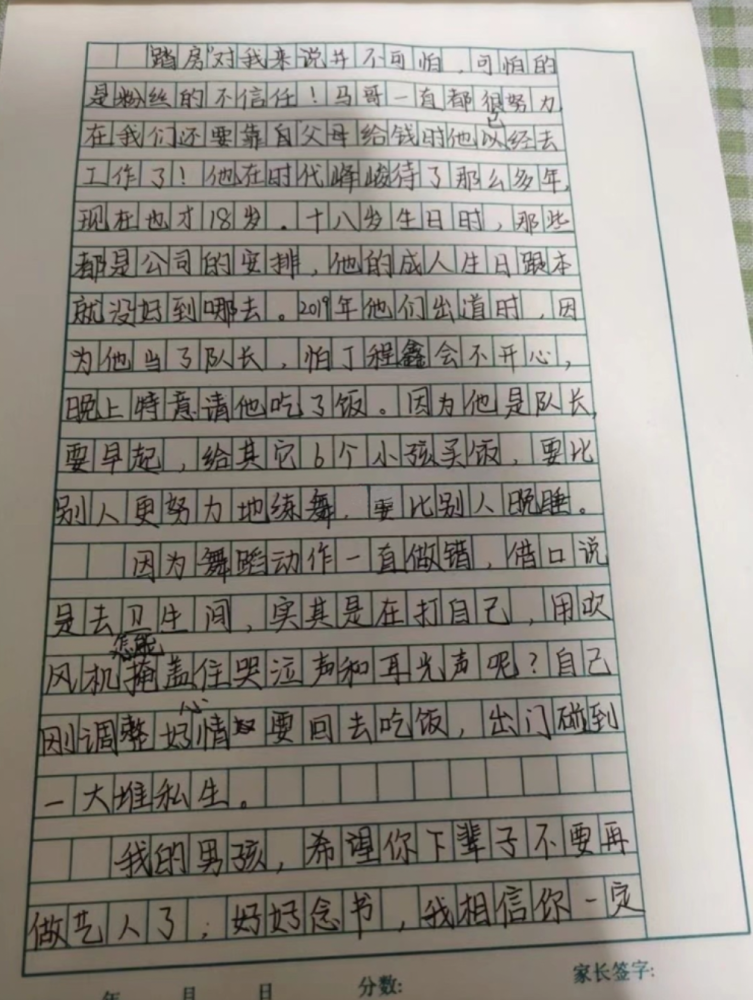 “踏房”对我来说并不可怕，可怕的
是粉丝的不信任！马哥一直都很努力
在我们还要靠自父母给钱时他以经去
已
工作了！他在时代峰峻待了那么多年，
现在也才18岁。十八岁生日时，那些
都是公司的安排，他的成人生日跟本
就没好到哪去。2019年他们出道时，因
为他当了队长，怕丁程鑫会不开心，
晚上特意请他吃了饭。因为他是队长，
要早起，给其它6个小孩买饭，要比
别人更努力地练舞，要比别人晚睡。
因为舞蹈动作一直做错，借口说
是去卫生间，实其是在打自己，用吹
怎能
风机掩盖住哭泣声和耳光声呢？自己
心
刚调整好情要回去吃饭，出门碰到
一大堆私生。
我的男孩，希望你下辈子不要再
做艺人了；好好念书，我相信你一定
年 月 日 分数: 家长签字: